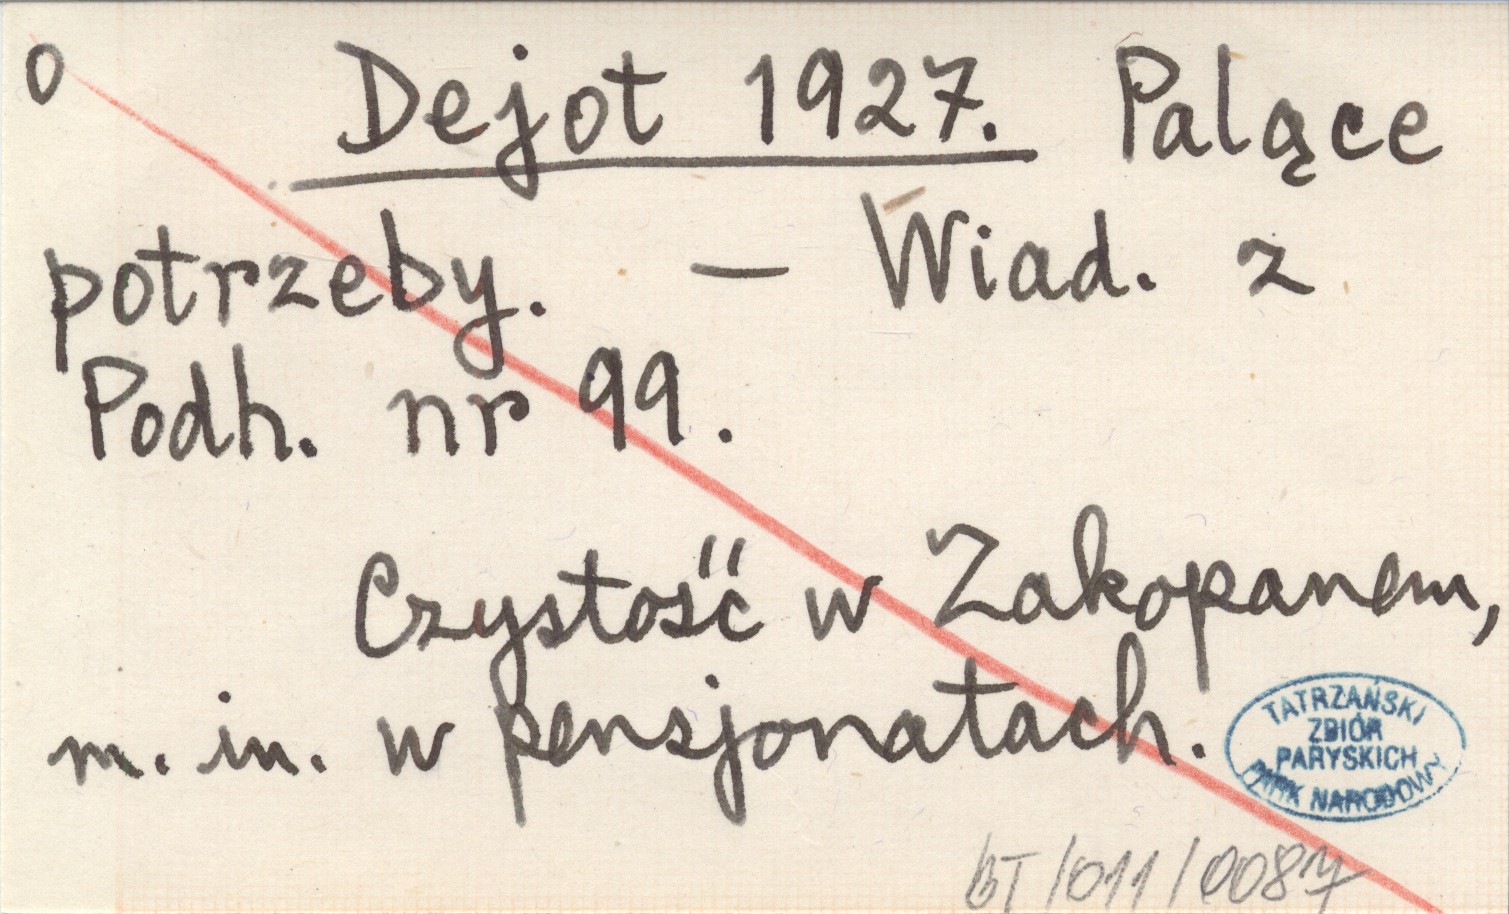 O Dejot 1927. Palące
potrzeby. — Wiad. z
Podh. nr 99.
Czystość w Zakopanem,
m. in. w pensjonatach.
TATRZAŃSKI
ZBIÓR
PARYSKICH
PARK NARODOWY
BT/011/0087